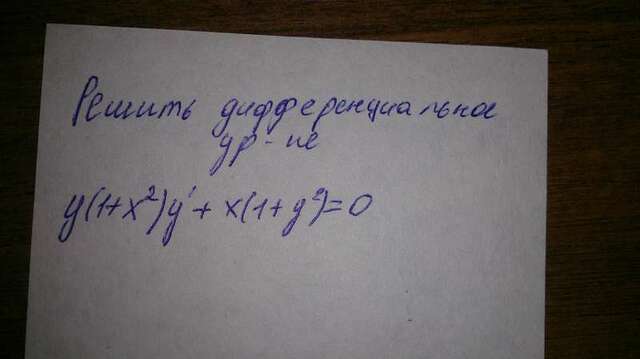 Решить дифференциальное
ур-ие
y(1+x²)y'+x(1+y²)=0